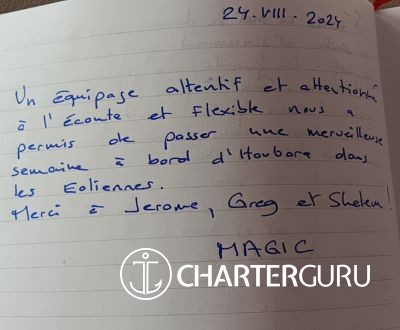 24.VIII.2024
Un équipage attentif et attentionné
à l'écoute et flexible nous a
permis de passer une merveilleuse
semaine à bord d'Houbara dans
les Eoliennes.
Merci à Jerome, Greg et Shelem!
MAGIC
CHARTERGURU